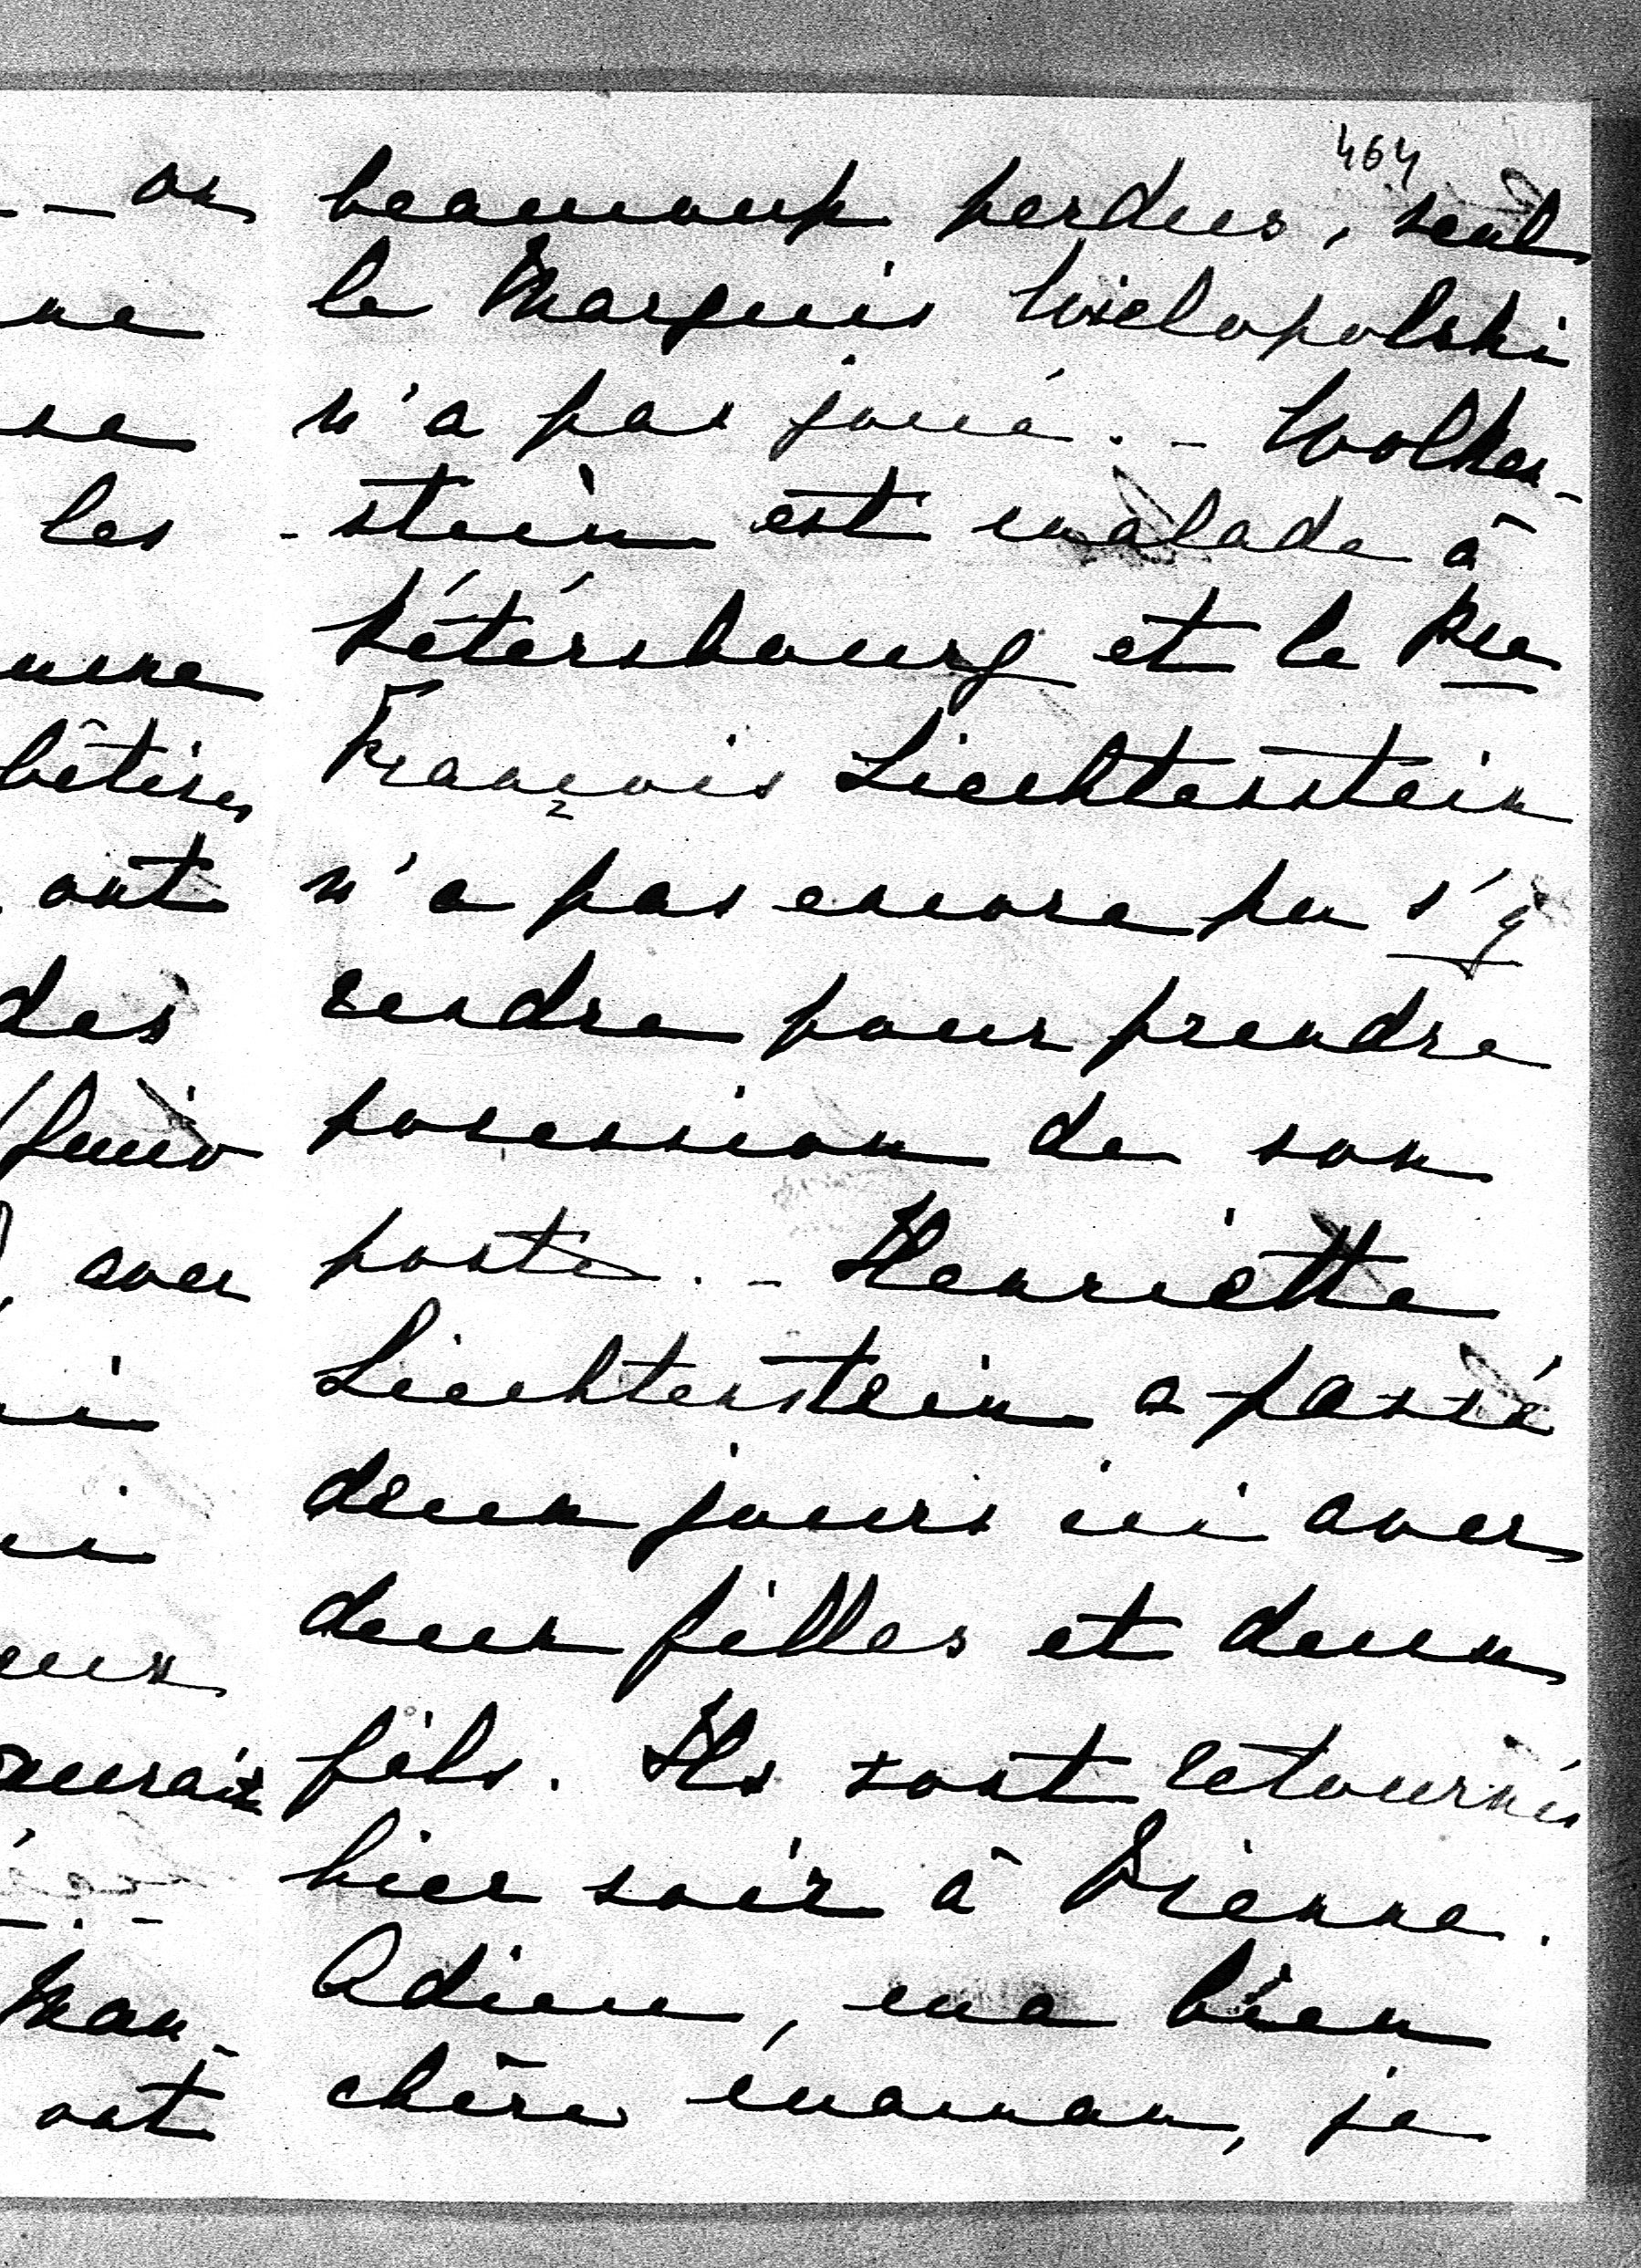 464
beaucoup perdus, seul
le Marquis Wielopolski
n'a pas joué. - Wolken-
-stein est malade à
Pétersbourg et le Pce
François Liechtenstein
n'a pas encore pu s'y
rendre pour prendre
posession de son
poste. - Henriette
Liechtenstein a passé
deux jours ici avec
deux filles et deux
fils. Ils sont retournés
hier soir à Vienne.
Adieu, ma bien
chère maman, je
on
ne
se
les
bêtises
ont
des
avec
Man-
ont